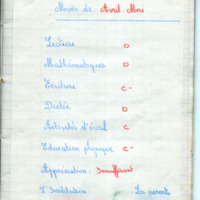 Mois de : Avril. Mai
Lecture D
Mathématiques D
Ecriture C-
Dictée D
Activités d'éveil C
Education physique C-
Appréciation : Insuffisant
L'Institutrice Les parents